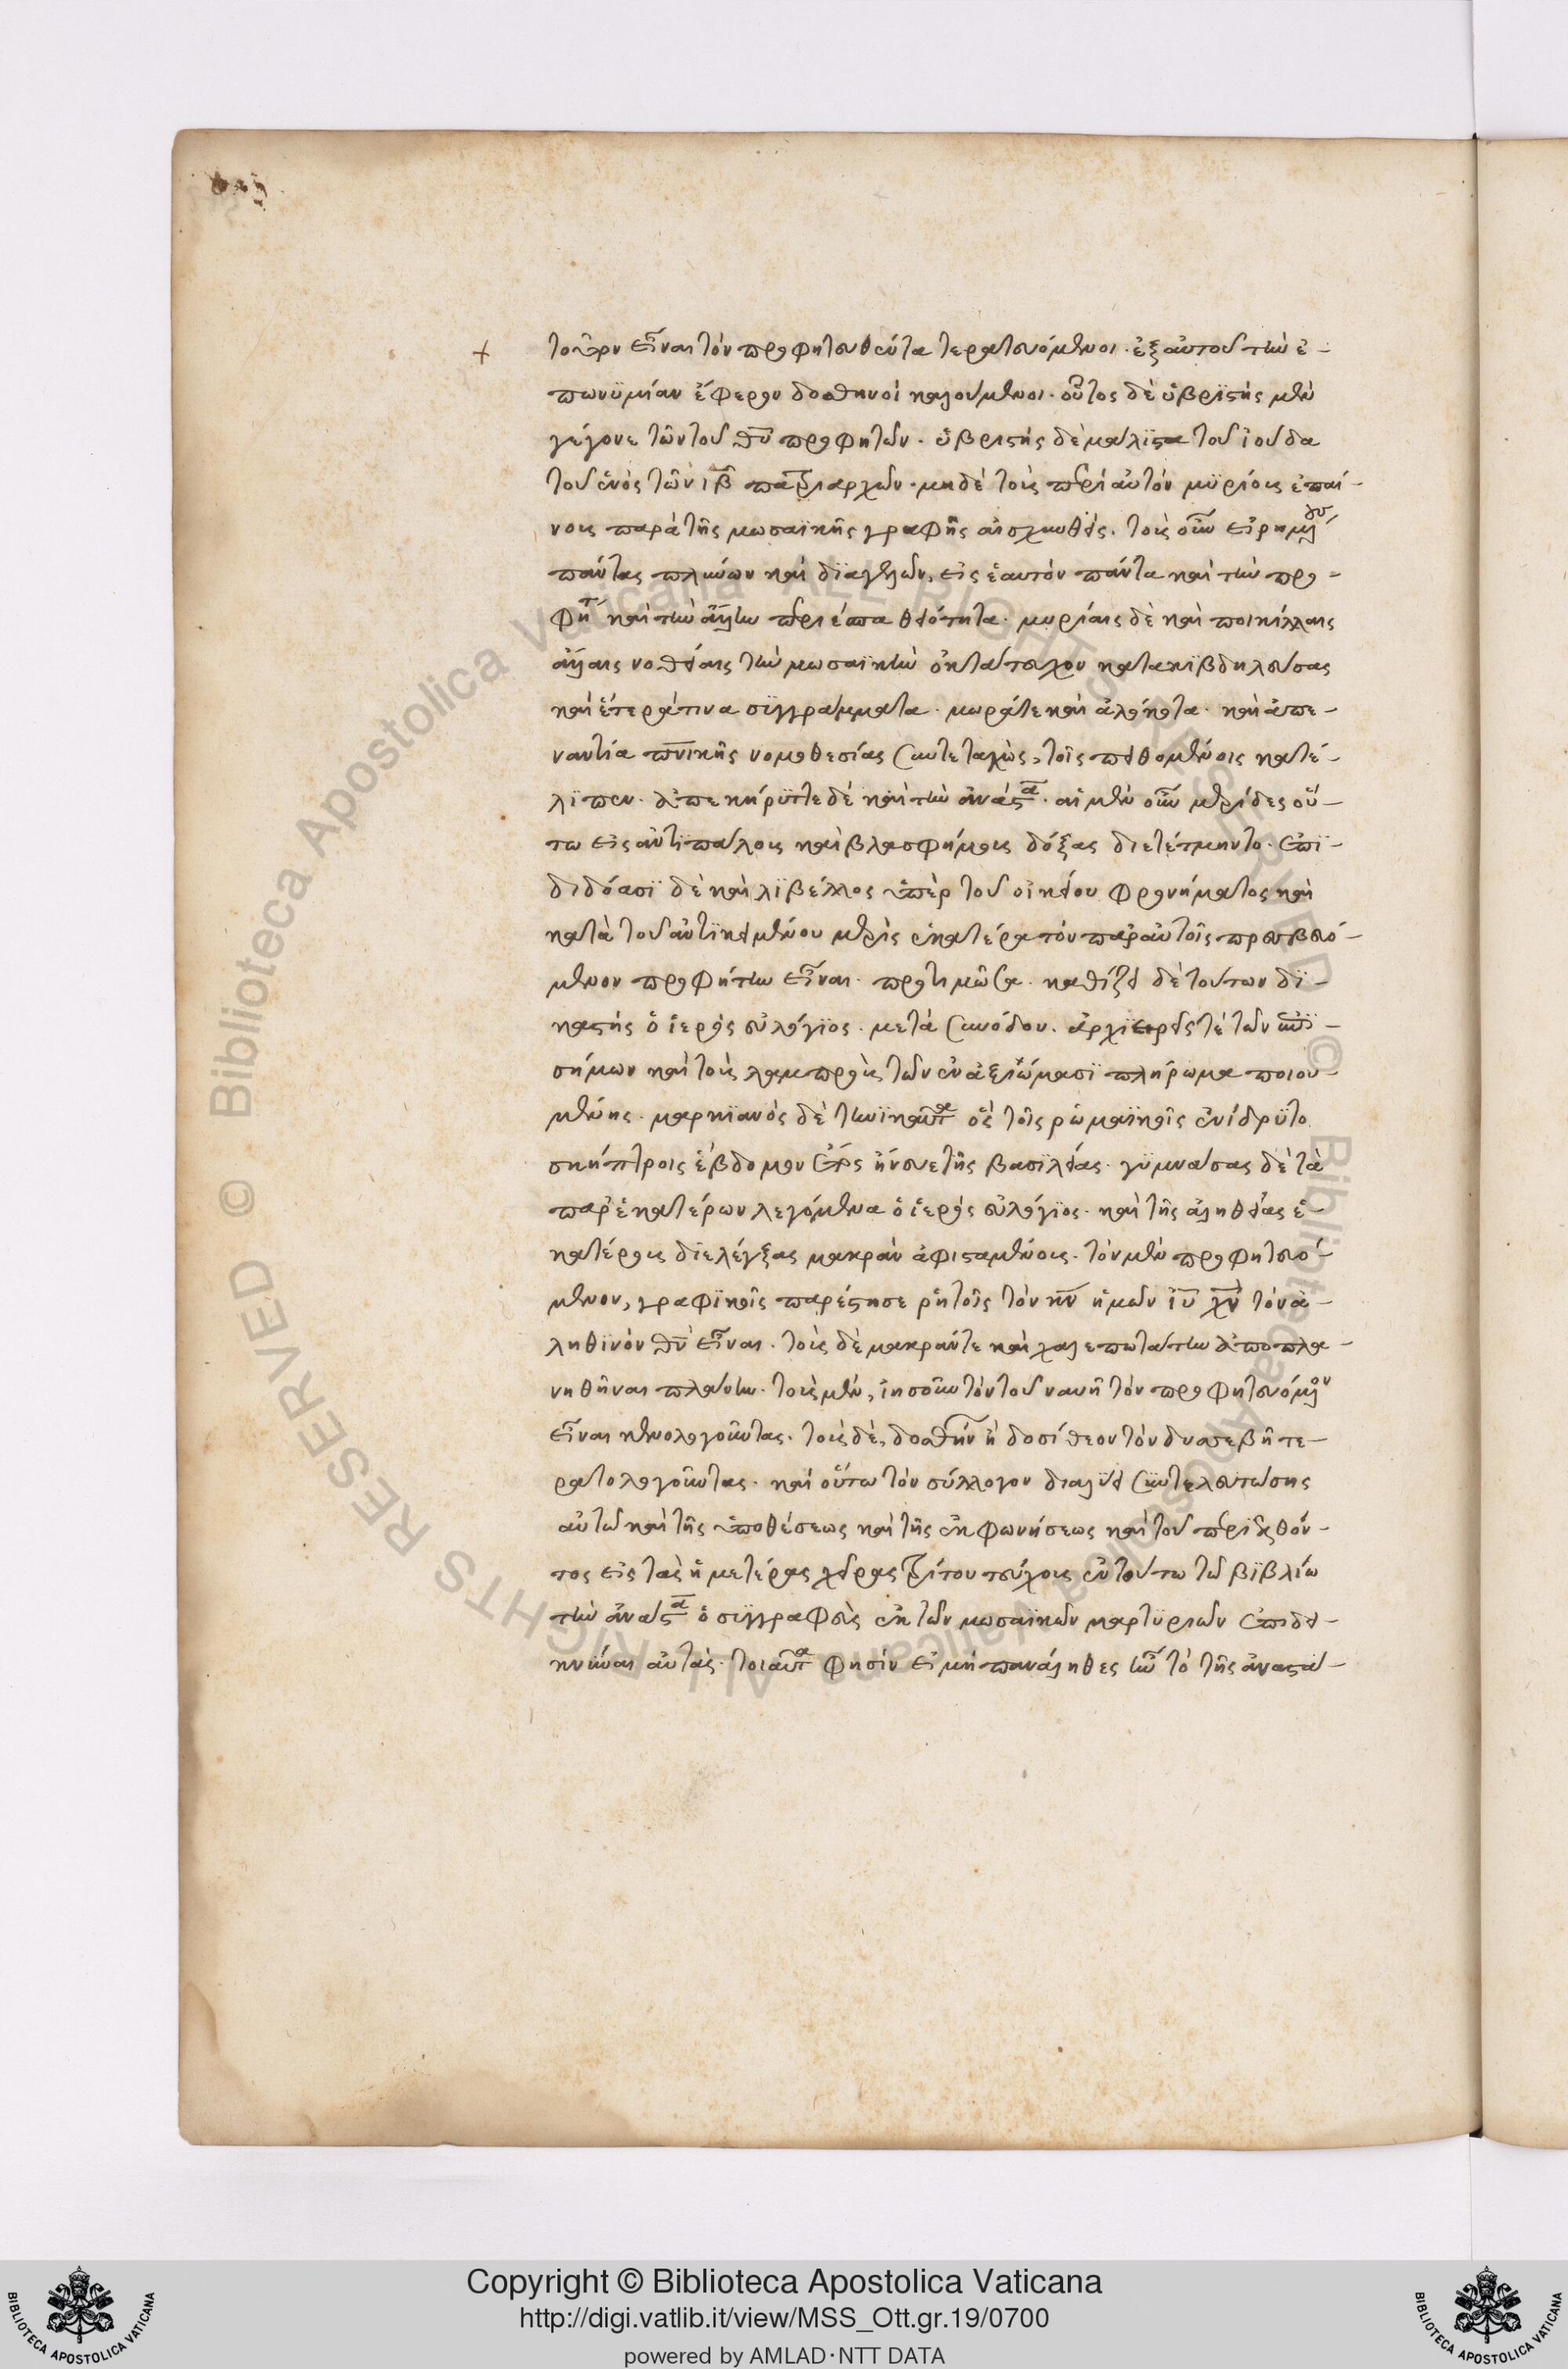 + τοῦτον εἶναι τὸν προφητευθέντα τερατευόμενοι. ἐξ αὐτοῦ τὴν ἐ-
πωνϋμίαν ἔφερον δοσθηνοὶ καλούμενοι. οὗτος δὲ ὑβριστὴς μὲν
γέγονε τῶν τοῦ θῡ προφητῶν. ὑβριστὴς δὲ μάλϊστα τοῦ ϊούδα
τοῦ ἑνὸς τῶν ιβ̄ πατριαρχῶν. μηδὲ τοὺς περὶ αὐτὸν μϋρίους ἐπαί-
νους παρὰ τῆς μωσαϊκῆς γραφῆς αἰσχυνθείς. τοὺς οὖν εἰρημένους
πάντας πλύνων καὶ δϊαγελῶν, εἰς ἑαυτὸν πάντα καὶ τὴν προ-
φητ καὶ τὴν ἄλλην περιέσπα θειότητα. μυρίαις δὲ καὶ ποικίλλαις
ἄλλαις νοθείαις τὴν μωσαϊκὴν ὀκτάτευχον κατακϊβδηλεύσας
καὶ ἕτερά τινα σϋγγράμματα. μωρά τε καὶ ἀλόκοτα. καὶ ἀπε-
ναντία πνικῆς νομοθεσίας συντεταχὼς, τοῖς πειθομένοις κατέ-
λϊπεν. ἀπεκήρϋττε δὲ καὶ τὴν ἀνάστα. αἱ μὲν οὖν μερίδες οὕ-
τω εἰς ἀντϊπάλους καὶ βλασφήμους δόξας διετέτμηντο. ἐπϊ-
διδόασϊ δὲ καὶ λϊβέλλος ὑπὲρ τοῦ οἰκείου φρονήματος καὶ
κατὰ τοῦ ἀντϊκειμένου μερὶς ἑκατέρα τὸν παρ αὐτοῖς πρεσβευό-
μενον προφήτην εἶναι. προτιμῶσα. καθίζει δὲ τούτων δϊ-
καστὴς ὁ ἱερὸς εὐλόγϊος. μετὰ συνόδου. ἀρχϊερεῖς τὲ τῶν ἐπϊ-
σήμων καὶ τοὺς λαμπροὺς τῶν ἐν ἀξιώμασϊ πλήρωμα ποιου-
μένης. μαρκϊανὸς δὲ τηνϊκαῦτα ὃς τοῖς ρωμαϊκοῖς ἐνίδρϋτο
σκήπτροις ἕβδομον ἔτος ἤνυε τῆς βασϊλείας. γϋμνάσας δὲ τὰ
παρ ἑκατέρων λεγόμενα ὁ ἱερὸς εὐλόγϊος. καὶ τῆς ἀληθείας ἑ-
κατέρους διελέγξας μακρὰν ἀφισταμένους. τὸν μὲν προφητευό-
μενον, γραφϊκοῖς παρέστησε ρητοῖς τὸν κν̄ ἡμῶν ῑῡ χν̄ τὸν ἀ-
ληθϊνὸν θν̄ εἶναι. τοὺς δὲ μακράν τε καὶ χαλεπωτάτην ἀποπλα-
νηθῆναι πλάνην. τοὺς μὲν, ἰησοῦν τὸν τοῦ ναυῆ τὸν προφητευόμενον
εἶναι κενολογοῦντας. τοὺς δὲ, δοσθὴν ἢ δοσίθεον τὸν δυσσεβῆ τε-
ρατολογοῦντας. καὶ οὕτω τὸν σύλλογον διαλύει συντελευτώσης
αὐτῶ καὶ τῆς ὑποθέσεως καὶ τῆς ἐκφωνήσεως καὶ τοῦ περιελθόν-
τος εἰς τὰς ἡμετέρας χεῖρας τρίτου τεύχους ἐν τούτω τῶ βϊβλίω
τὴν ἀνάστα ὁ σϋγγραφεὺς ἐκ τῶν μωσαϊκῶν μαρτϋριῶν ἐπιδει-
κνύναι αὐτάς. τοιαῦτα φησὶν εἰ μὴ πανάληθες ἦν τὸ τῆς ἀναστά-
Copyright © Biblioteca Apostolica Vaticana
http://digi.vatlib.it/view/MSS_Ott.gr.19/0700
powered by AMLAD·NTT DATA